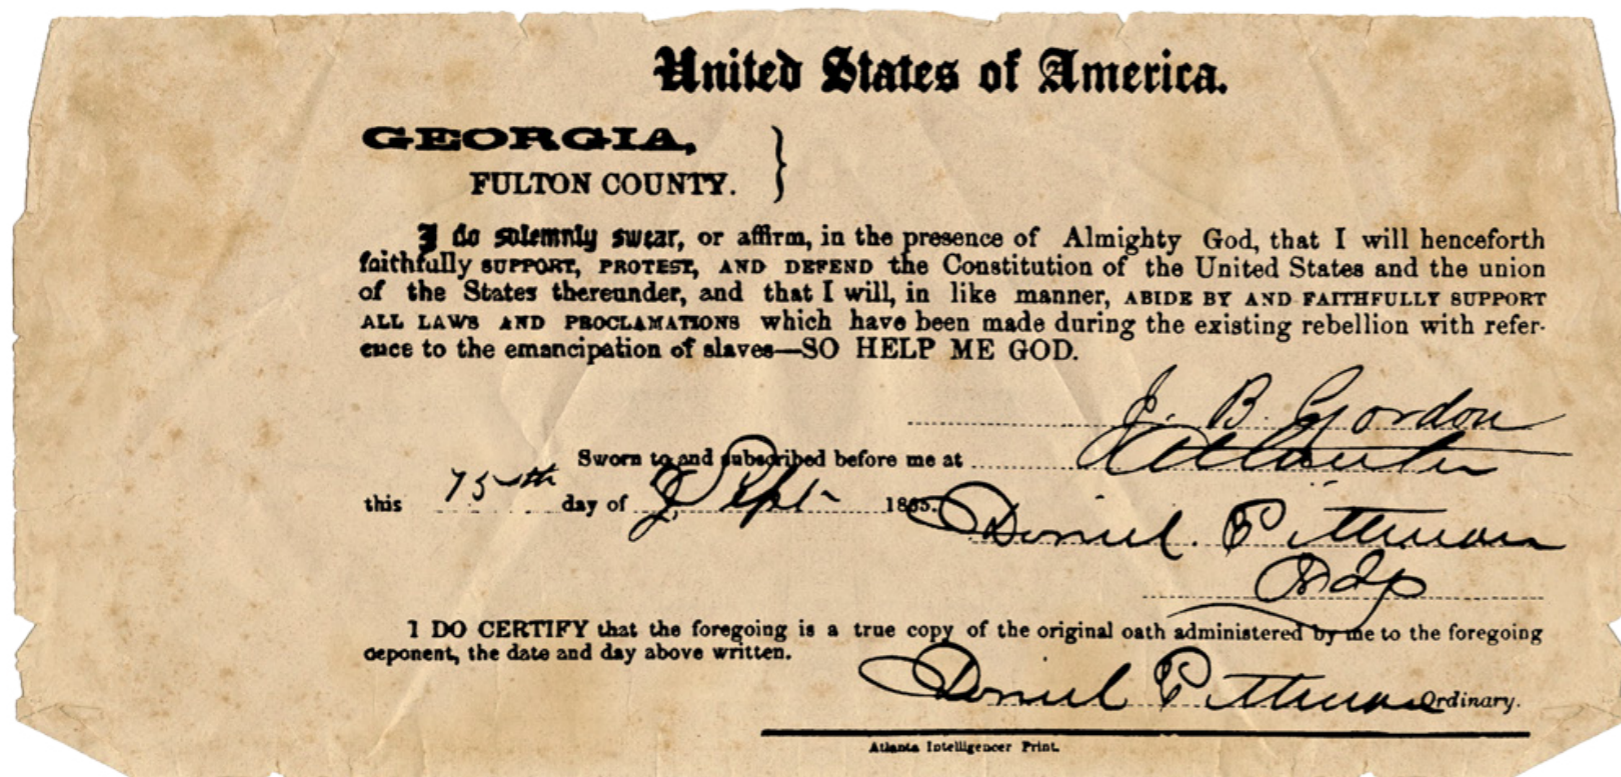 United States of America.
GEORGIA,
FULTON COUNTY.
I do solemnly swear, or affirm, in the presence of Almighty God, that I will henceforth
faithfully SUPPORT, PROTEST, AND DEFEND the Constitution of the United States and the union
of the States thereunder, and that I will, in like manner, ABIDE BY AND FAITHFULLY SUPPORT
ALL LAWS AND PROCLAMATIONS which have been made during the existing rebellion with refer-
ence to the emancipation of slaves—SO HELP ME GOD.
J. B. Gordon
Sworn to and subscribed before me at Atlanta
this 15th day of Sept 1865. Daniel Pittman
Ordy
I DO CERTIFY that the foregoing is a true copy of the original oath administered by me to the foregoing
deponent, the date and day above written.
Daniel Pittman Ordinary.
Atlanta Intelligencer Print.